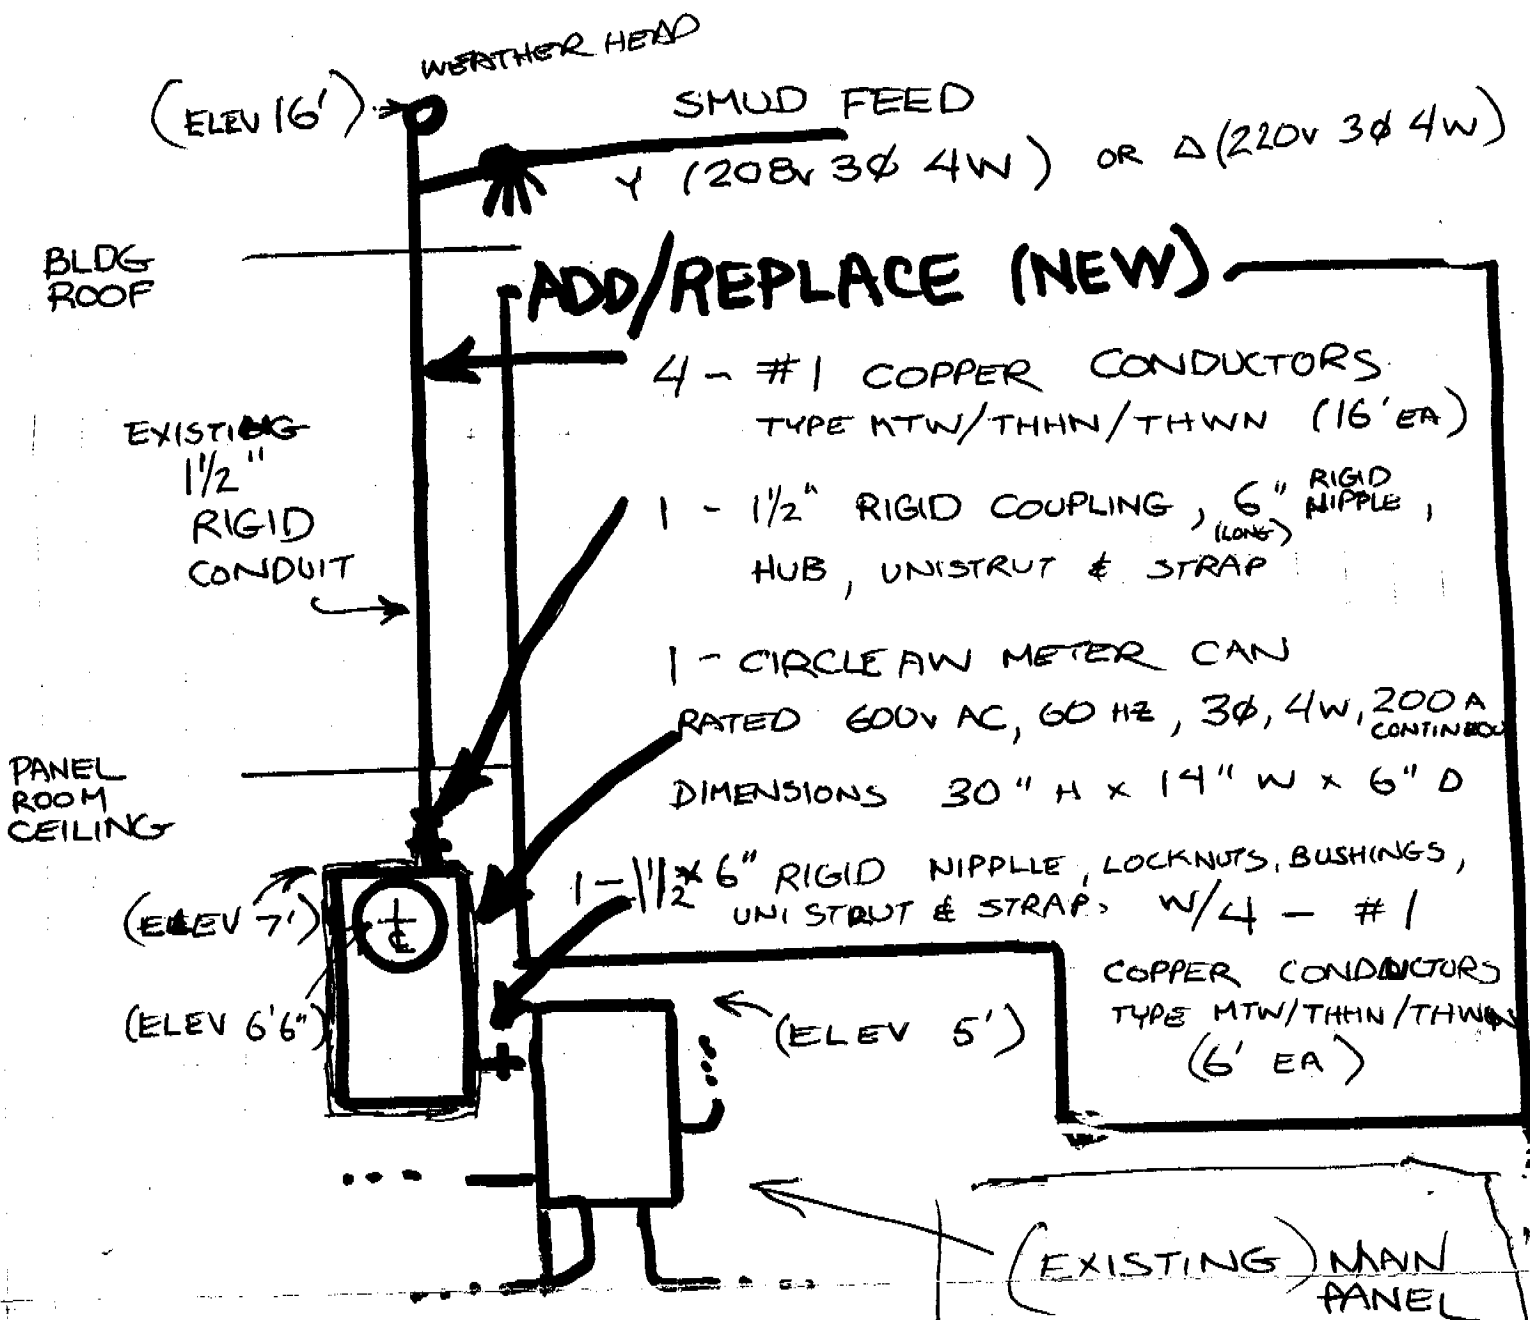 WEATHER HEAD
(ELEV 16')
SMUD FEED
Y (208v 3Ø 4W) OR Δ (220v 3Ø 4W)
BLDG
ROOF
ADD/REPLACE (NEW)
4 - #1 COPPER CONDUCTORS
TYPE MTW/THHN/THWN (16' EA)
EXISTING
1 1/2"
RIGID
CONDUIT
1 - 1 1/2" RIGID COUPLING, 6" RIGID NIPPLE,
(LONG)
HUB, UNISTRUT & STRAP
1 - CIRCLE AW METER CAN
RATED 600v AC, 60 HZ, 3Ø, 4W, 200 A
CONTINEOU
DIMENSIONS 30" H x 14" W x 6" D
PANEL
ROOM
CEILING
1 - 1 1/2 x 6" RIGID NIPPLLE, LOCKNUTS, BUSHINGS,
UNISTRUT & STRAP, W/4 - #1
COPPER CONDUCTORS
TYPE MTW/THHN/THWN
(6' EA)
(ELEV 7')
℄
(ELEV 6'6")
(ELEV 5')
(EXISTING) MAIN
PANEL